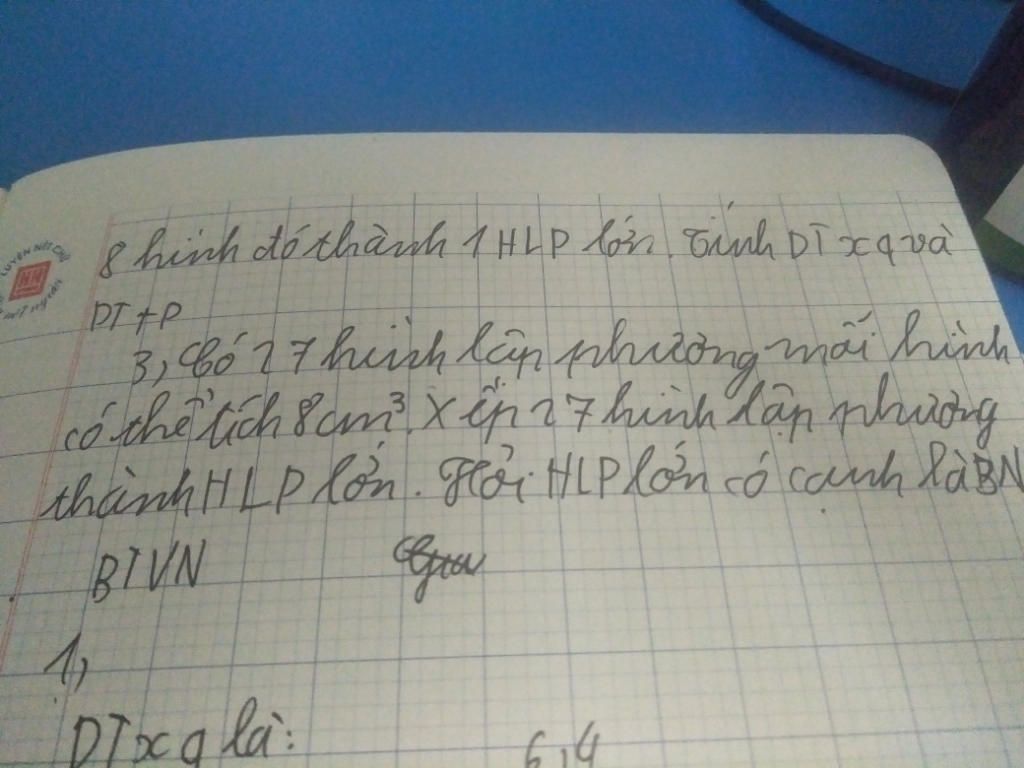 LUYỆN NÉT CHỮ
NÉT NGƯỜI
8 hình đó thành 1 HLP lớn. Tính DT xq và
DT TP
3, Có 27 hình lập phương mỗi hình
có thể tích 8cm³. Xếp 27 hình lập phương
thành HLP lớn. Hỏi HLP lớn có cạnh là BN
BTVN
1,
DT xq là: 6,4